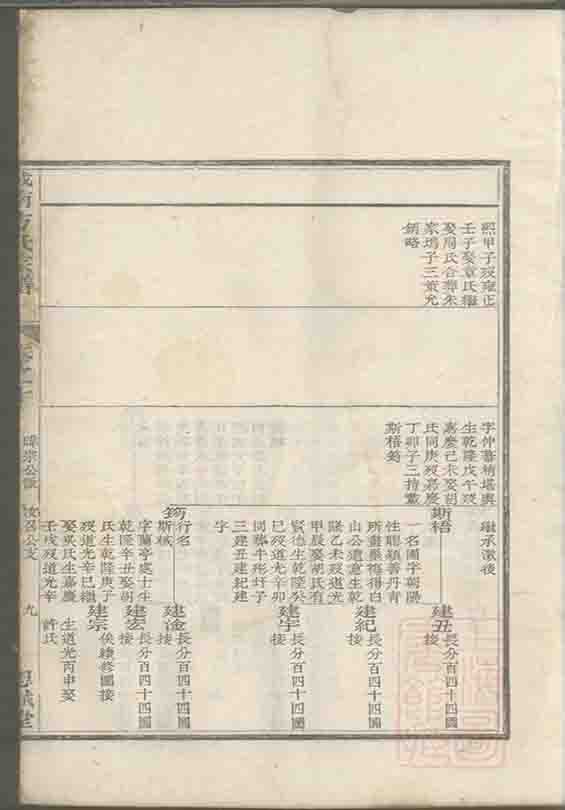 熙甲子歿雍正
壬子娶章氏繼
娶周氏合葬朱
家塢子三茂允
炳略
字仲蕃精堪輿
生乾隆戊午歿
嘉慶己未娶胡
氏同庚歿嘉慶
丁卯子三持黻
斯梧藒
繼承澈後
斯梧
一名圖字朝陽
性聰穎善丹青
所畫墨梅得白
山公遺意生乾
隆乙未歿道光
甲辰娶胡氏有
賢德生乾隆癸
巳歿道光辛卯
同葬牛形圩子
三建丑建紀建
宇
建丑
長分百四十四圖
接
建紀
長分百四十四圖
接
建宇
長分百四十四圖
接
行名
斯棫
字蘭亭處士生
乾隆辛丑娶胡
氏生乾隆庚子
歿道光辛巳繼
娶吳氏生嘉慶
壬戌歿道光辛
建淦
長分百四十四圖
接
建宏
長分百四十四圖
接
建宗
俟續修圖接
生道光丙申娶
許氏
方氏宗譜
卷之
公支
九